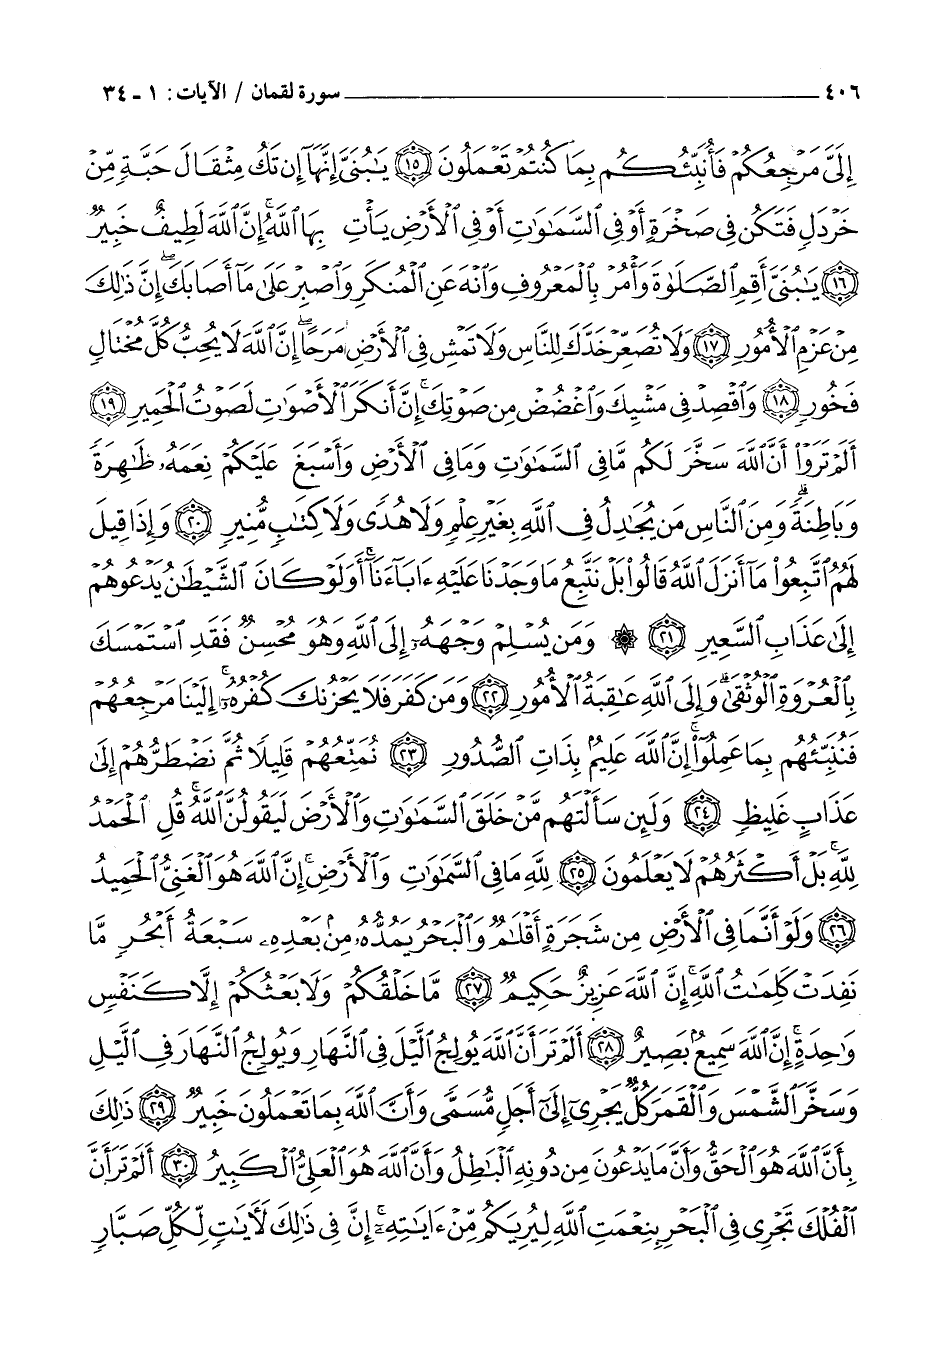 ٤٠٦ سورة لقمان / الآيات: ١ - ٣٤
إِلَىَّ مَرْجِعُكُمْ فَأُنَبِّئُكُم بِمَا كُنتُمْ تَعْمَلُونَ ﴿١٥﴾ يَٰبُنَىَّ إِنَّهَآ إِن تَكُ مِثْقَالَ حَبَّةٍ مِّنْ
خَرْدَلٍ فَتَكُن فِى صَخْرَةٍ أَوْ فِى ٱلسَّمَٰوَٰتِ أَوْ فِى ٱلْأَرْضِ يَأْتِ بِهَا ٱللَّهُ ۚ إِنَّ ٱللَّهَ لَطِيفٌ خَبِيرٌ
﴿١٦﴾ يَٰبُنَىَّ أَقِمِ ٱلصَّلَوٰةَ وَأْمُرْ بِٱلْمَعْرُوفِ وَٱنْهَ عَنِ ٱلْمُنكَرِ وَٱصْبِرْ عَلَىٰ مَآ أَصَابَكَ ۖ إِنَّ ذَٰلِكَ
مِنْ عَزْمِ ٱلْأُمُورِ ﴿١٧﴾ وَلَا تُصَعِّرْ خَدَّكَ لِلنَّاسِ وَلَا تَمْشِ فِى ٱلْأَرْضِ مَرَحًا ۖ إِنَّ ٱللَّهَ لَا يُحِبُّ كُلَّ مُخْتَالٍ
فَخُورٍ ﴿١٨﴾ وَٱقْصِدْ فِى مَشْيِكَ وَٱغْضُضْ مِن صَوْتِكَ ۚ إِنَّ أَنكَرَ ٱلْأَصْوَٰتِ لَصَوْتُ ٱلْحَمِيرِ ﴿١٩﴾
أَلَمْ تَرَوْا۟ أَنَّ ٱللَّهَ سَخَّرَ لَكُم مَّا فِى ٱلسَّمَٰوَٰتِ وَمَا فِى ٱلْأَرْضِ وَأَسْبَغَ عَلَيْكُمْ نِعَمَهُۥ ظَٰهِرَةً
وَبَاطِنَةً ۗ وَمِنَ ٱلنَّاسِ مَن يُجَٰدِلُ فِى ٱللَّهِ بِغَيْرِ عِلْمٍ وَلَا هُدًى وَلَا كِتَٰبٍ مُّنِيرٍ ﴿٢٠﴾ وَإِذَا قِيلَ
لَهُمُ ٱتَّبِعُوا۟ مَآ أَنزَلَ ٱللَّهُ قَالُوا۟ بَلْ نَتَّبِعُ مَا وَجَدْنَا عَلَيْهِ ءَابَآءَنَآ ۚ أَوَلَوْ كَانَ ٱلشَّيْطَٰنُ يَدْعُوهُمْ
إِلَىٰ عَذَابِ ٱلسَّعِيرِ ﴿٢١﴾ ۞ وَمَن يُسْلِمْ وَجْهَهُۥٓ إِلَى ٱللَّهِ وَهُوَ مُحْسِنٌ فَقَدِ ٱسْتَمْسَكَ
بِٱلْعُرْوَةِ ٱلْوُثْقَىٰ ۗ وَإِلَى ٱللَّهِ عَٰقِبَةُ ٱلْأُمُورِ ﴿٢٢﴾ وَمَن كَفَرَ فَلَا يَحْزُنكَ كُفْرُهُۥٓ ۚ إِلَيْنَا مَرْجِعُهُمْ
فَنُنَبِّئُهُم بِمَا عَمِلُوٓا۟ ۚ إِنَّ ٱللَّهَ عَلِيمٌۢ بِذَاتِ ٱلصُّدُورِ ﴿٢٣﴾ نُمَتِّعُهُمْ قَلِيلًا ثُمَّ نَضْطَرُّهُمْ إِلَىٰ
عَذَابٍ غَلِيظٍ ﴿٢٤﴾ وَلَئِن سَأَلْتَهُم مَّنْ خَلَقَ ٱلسَّمَٰوَٰتِ وَٱلْأَرْضَ لَيَقُولُنَّ ٱللَّهُ ۚ قُلِ ٱلْحَمْدُ
لِلَّهِ ۚ بَلْ أَكْثَرُهُمْ لَا يَعْلَمُونَ ﴿٢٥﴾ لِلَّهِ مَا فِى ٱلسَّمَٰوَٰتِ وَٱلْأَرْضِ ۚ إِنَّ ٱللَّهَ هُوَ ٱلْغَنِىُّ ٱلْحَمِيدُ
﴿٢٦﴾ وَلَوْ أَنَّمَا فِى ٱلْأَرْضِ مِن شَجَرَةٍ أَقْلَٰمٌ وَٱلْبَحْرُ يَمُدُّهُۥ مِنۢ بَعْدِهِۦ سَبْعَةُ أَبْحُرٍ مَّا
نَفِدَتْ كَلِمَٰتُ ٱللَّهِ ۗ إِنَّ ٱللَّهَ عَزِيزٌ حَكِيمٌ ﴿٢٧﴾ مَّا خَلْقُكُمْ وَلَا بَعْثُكُمْ إِلَّا كَنَفْسٍ
وَٰحِدَةٍ ۗ إِنَّ ٱللَّهَ سَمِيعٌۢ بَصِيرٌ ﴿٢٨﴾ أَلَمْ تَرَ أَنَّ ٱللَّهَ يُولِجُ ٱلَّيْلَ فِى ٱلنَّهَارِ وَيُولِجُ ٱلنَّهَارَ فِى ٱلَّيْلِ
وَسَخَّرَ ٱلشَّمْسَ وَٱلْقَمَرَ كُلٌّ يَجْرِىٓ إِلَىٰٓ أَجَلٍ مُّسَمًّى وَأَنَّ ٱللَّهَ بِمَا تَعْمَلُونَ خَبِيرٌ ﴿٢٩﴾ ذَٰلِكَ
بِأَنَّ ٱللَّهَ هُوَ ٱلْحَقُّ وَأَنَّ مَا يَدْعُونَ مِن دُونِهِ ٱلْبَٰطِلُ وَأَنَّ ٱللَّهَ هُوَ ٱلْعَلِىُّ ٱلْكَبِيرُ ﴿٣٠﴾ أَلَمْ تَرَ أَنَّ
ٱلْفُلْكَ تَجْرِى فِى ٱلْبَحْرِ بِنِعْمَتِ ٱللَّهِ لِيُرِيَكُم مِّنْ ءَايَٰتِهِۦٓ ۚ إِنَّ فِى ذَٰلِكَ لَءَايَٰتٍ لِّكُلِّ صَبَّارٍ